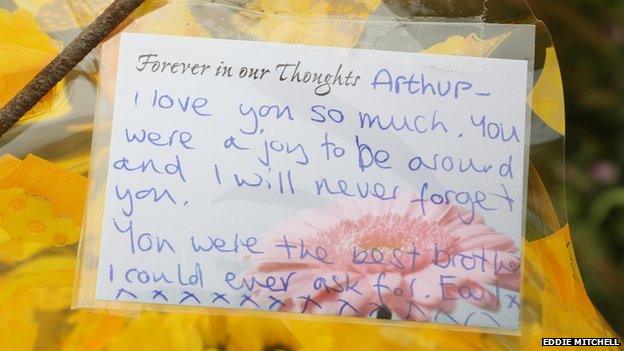 Forever in our Thoughts Arthur-
I love you so much. You
were a joy to be around
and I will never forget
you.
You were the best brothe
I could ever ask for. Earl x
x x x x x x x x x x x x x
EDDIE MITCHELL